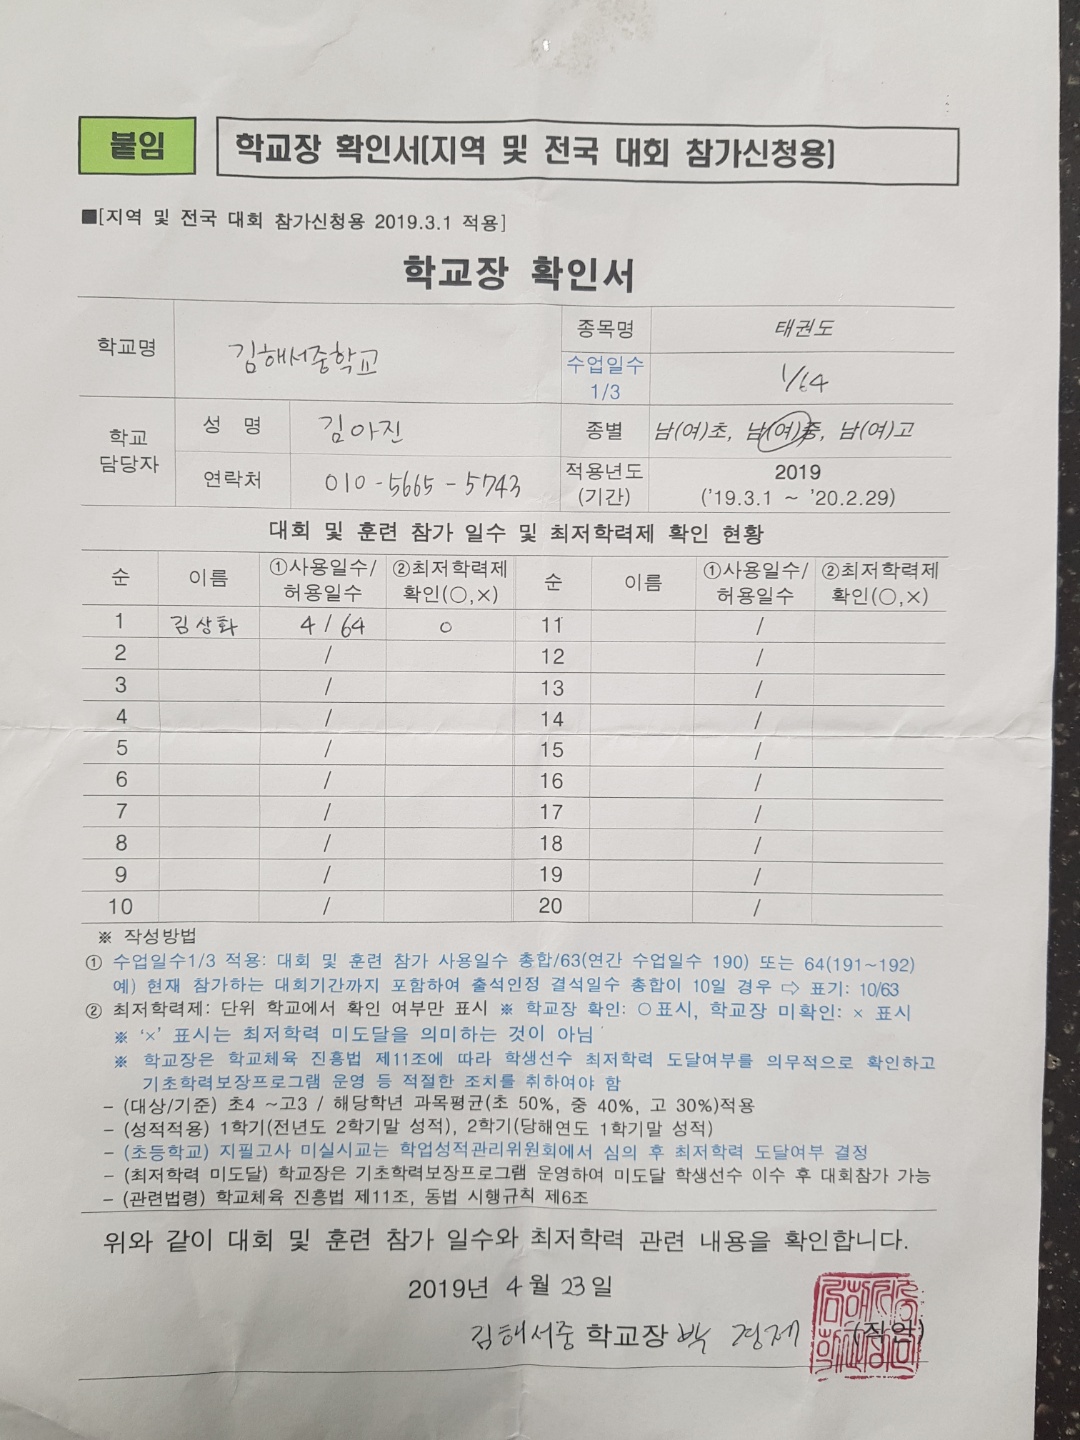 붙임 학교장 확인서(지역 및 전국 대회 참가신청용)
■[지역 및 전국 대회 참가신청용 2019.3.1 적용]
학교장 확인서
학교명 김해서중학교 종목명 태권도
수업일수 1/3 1/64
학교 담당자 성 명 김아진 종별 남(여)초, 남(여)중, 남(여)고
연락처 010-5665-5743 적용년도 (기간) 2019 ('19.3.1 ~ '20.2.29)
대회 및 훈련 참가 일수 및 최저학력제 확인 현황
순 이름 ①사용일수/허용일수 ②최저학력제 확인(○,×) 순 이름 ①사용일수/허용일수 ②최저학력제 확인(○,×)
1 김상화 4 / 64 ○ 11 /
2 / 12 /
3 / 13 /
4 / 14 /
5 / 15 /
6 / 16 /
7 / 17 /
8 / 18 /
9 / 19 /
10 / 20 /
※ 작성방법
① 수업일수1/3 적용: 대회 및 훈련 참가 사용일수 총합/63(연간 수업일수 190) 또는 64(191~192)
예) 현재 참가하는 대회기간까지 포함하여 출석인정 결석일수 총합이 10일 경우 ⇨ 표기: 10/63
② 최저학력제: 단위 학교에서 확인 여부만 표시 ※ 학교장 확인: ○표시, 학교장 미확인: × 표시
※ '×' 표시는 최저학력 미도달을 의미하는 것이 아님
※ 학교장은 학교체육 진흥법 제11조에 따라 학생선수 최저학력 도달여부를 의무적으로 확인하고
기초학력보장프로그램 운영 등 적절한 조치를 취하여야 함
- (대상/기준) 초4 ~고3 / 해당학년 과목평균(초 50%, 중 40%, 고 30%)적용
- (성적적용) 1학기(전년도 2학기말 성적), 2학기(당해연도 1학기말 성적)
- (초등학교) 지필고사 미실시교는 학업성적관리위원회에서 심의 후 최저학력 도달여부 결정
- (최저학력 미도달) 학교장은 기초학력보장프로그램 운영하여 미도달 학생선수 이수 후 대회참가 가능
- (관련법령) 학교체육 진흥법 제11조, 동법 시행규칙 제6조
위와 같이 대회 및 훈련 참가 일수와 최저학력 관련 내용을 확인합니다.
2019년 4월 23일
김해서중 학교장 박 경제 (직인)